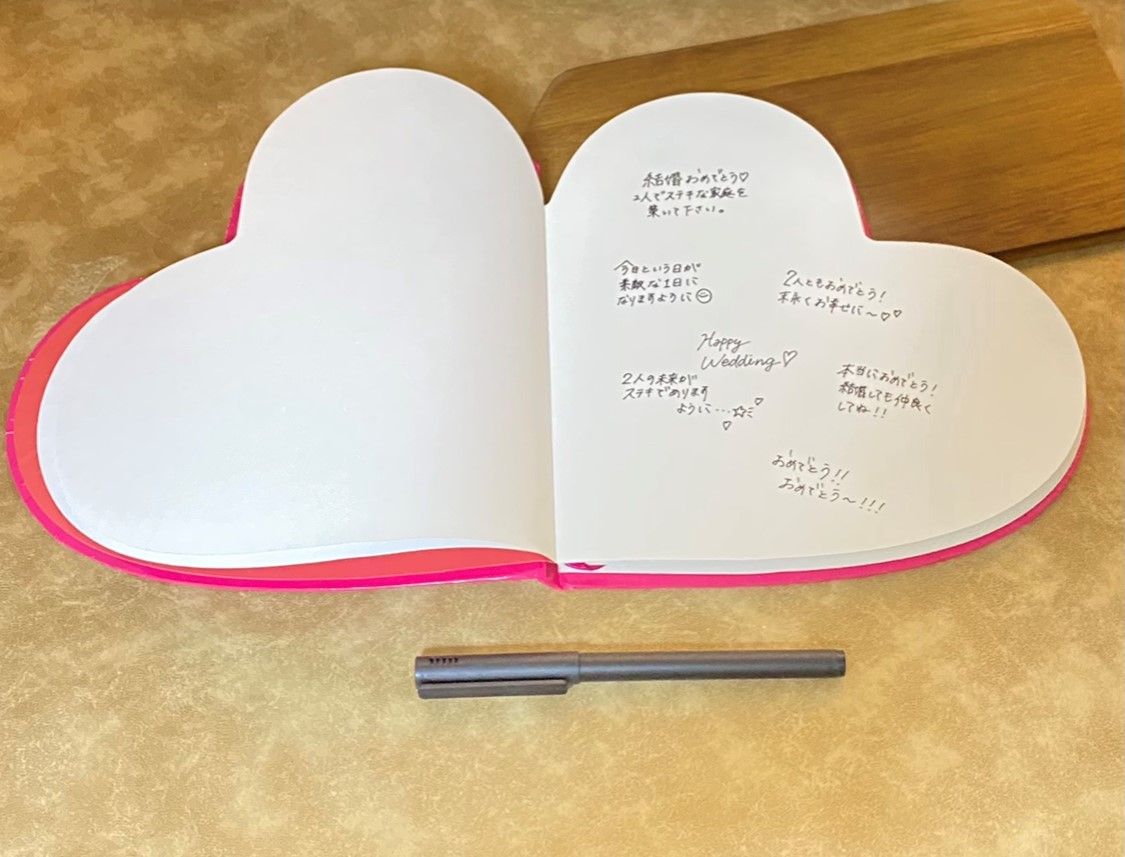 結婚おめでとう♡
2人でステキな家庭を
築いて下さい。
今日という日が
素敵な1日に
なりますように☺
2人ともおめでとう!
末永くお幸せに〜♡♡
Happy
Wedding♡
2人の未来が
ステキであります
ように…☆♡♡
本当におめでとう!
結婚しても仲良く
してね!!
おめでとう!!
おめでとう〜!!!